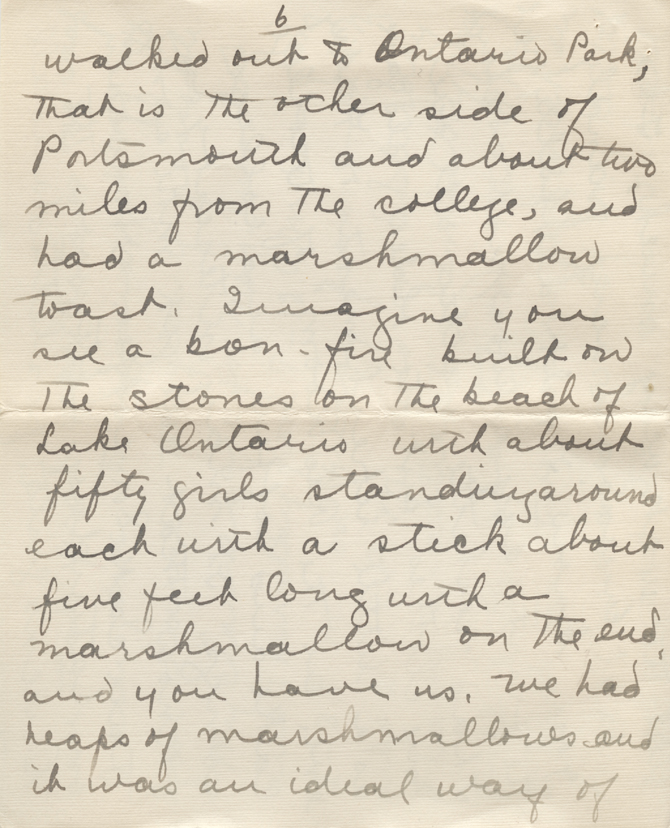 6
walked out to Ontario Park,
that is the other side of
Portsmouth and about two
miles from the college, and
had a marshmallow
toast. Imagine you
see a bon-fire built on
the stones on the beach of
Lake Ontario with about
fifty girls standing around
each with a stick about
five feet long with a
marshmallow on the end,
and you have us. We had
heaps of marshmallows and
it was an ideal way of